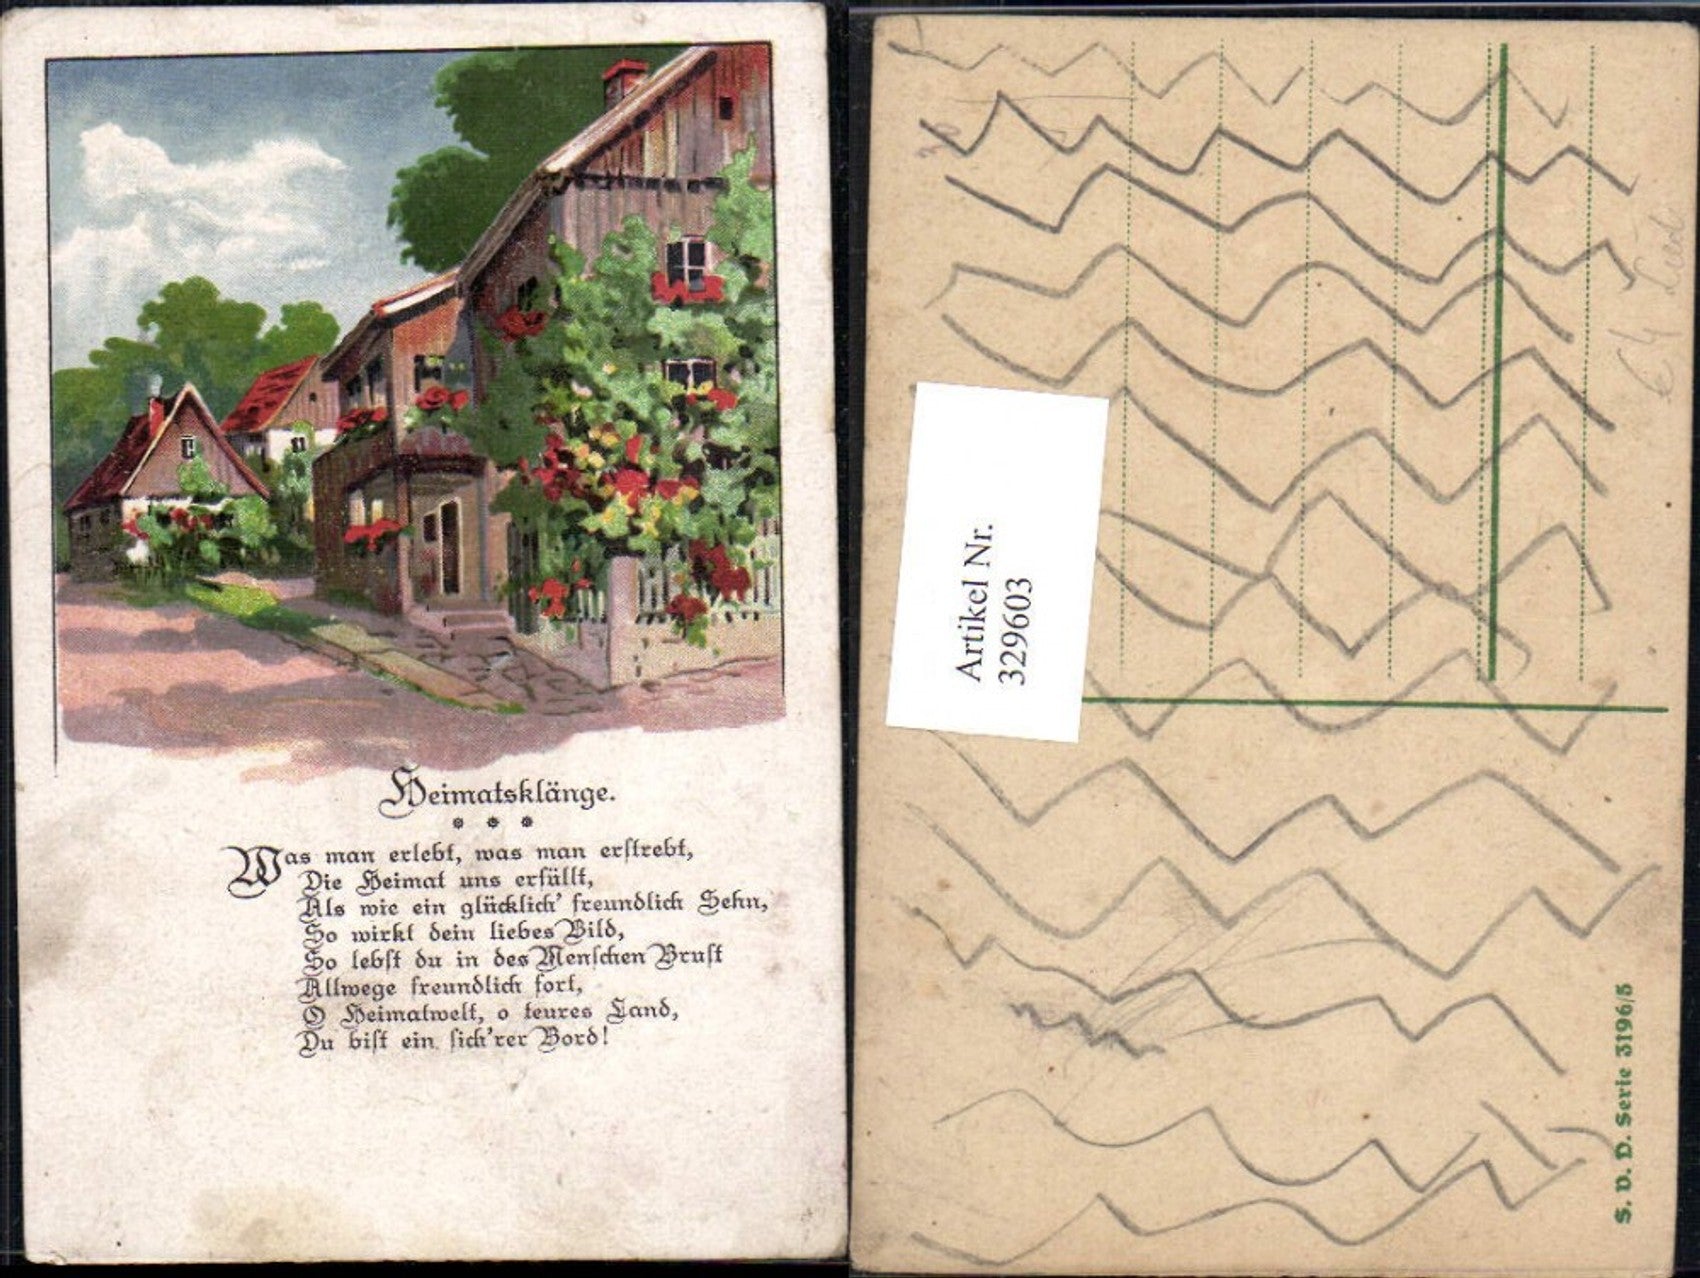 Heimatsklänge.
Was man erlebt, was man erstrebt,
Die Heimat uns erfüllt,
Als wie ein glücklich' freundlich Sehn,
So wirkt dein liebes Bild,
So lebst du in des Menschen Brust
Allwege freundlich fort,
O Heimatwelt, o teures Land,
Du bist ein sich'rer Bord!
Artikel Nr.
3296603
€ 4 Lied
S. V. D. Serie 3196/5